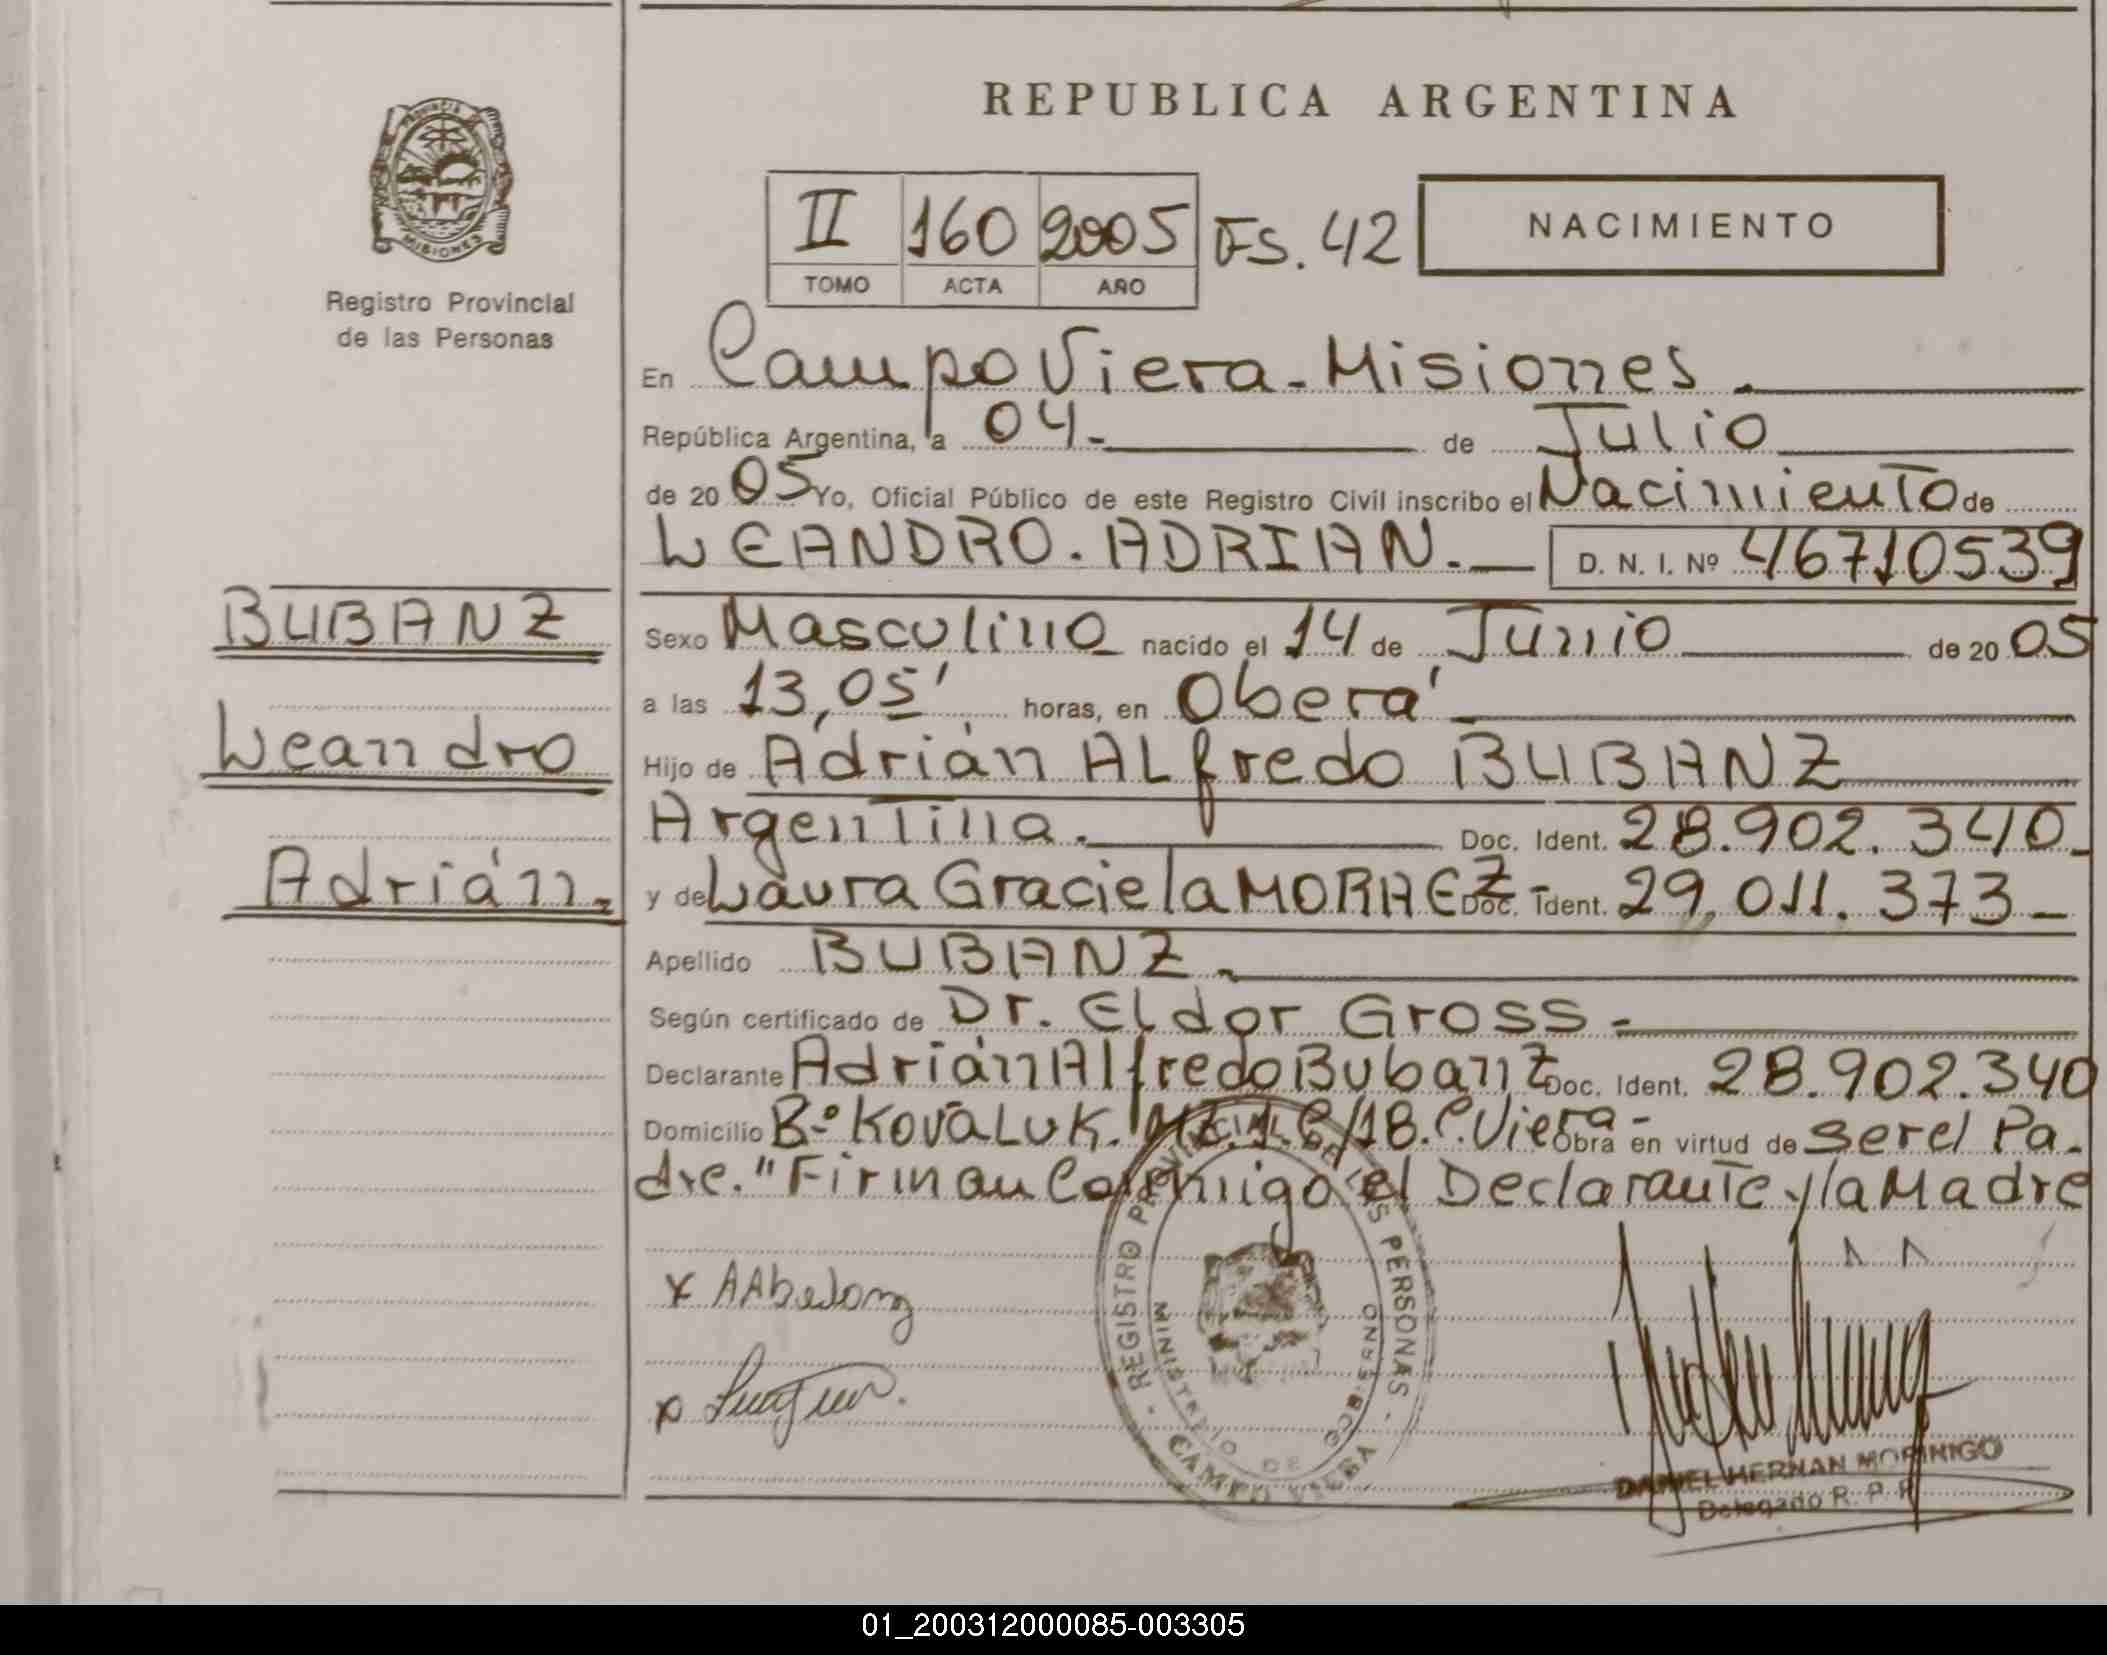 REPUBLICA ARGENTINA
PROVINCIA DE
MISIONES
Registro Provincial
de las Personas
II 160 2005 Fs. 42
TOMO ACTA AÑO
NACIMIENTO
En Campo Viera - Misiones.
República Argentina, a 04. de Julio
de 2005 Yo, Oficial Público de este Registro Civil inscribo el Nacimiento de
LEANDRO. ADRIAN. D. N. I. Nº 46710539
BUBANZ
Leandro
Adrián
Sexo Masculino nacido el 14 de Junio de 2005
a las 13,05' horas, en Oberá
Hijo de Adrián ALfredo BUBANZ
Argentina. Doc. Ident. 28.902.340
y de Laura Graciela MORAEZ Doc. Ident. 29.011.373
Apellido BUBANZ
Según certificado de Dr. Eldor Gross
Declarante Adrián Alfredo Bubanz Doc. Ident. 28.902.340
Domicilio Bº KOVALUK. MZ. 1. C/18. C. Viera - Obra en virtud de ser el Pa-
dre. "Firman Conmigo el Declarante y la Madre
REGISTRO PROVINCIAL DE LAS PERSONAS
MINISTERIO DE GOBIERNO
CAMPO VIERA
DANIEL HERNAN MORINIGO
Delegado R. P. P.
01_200312000085-003305